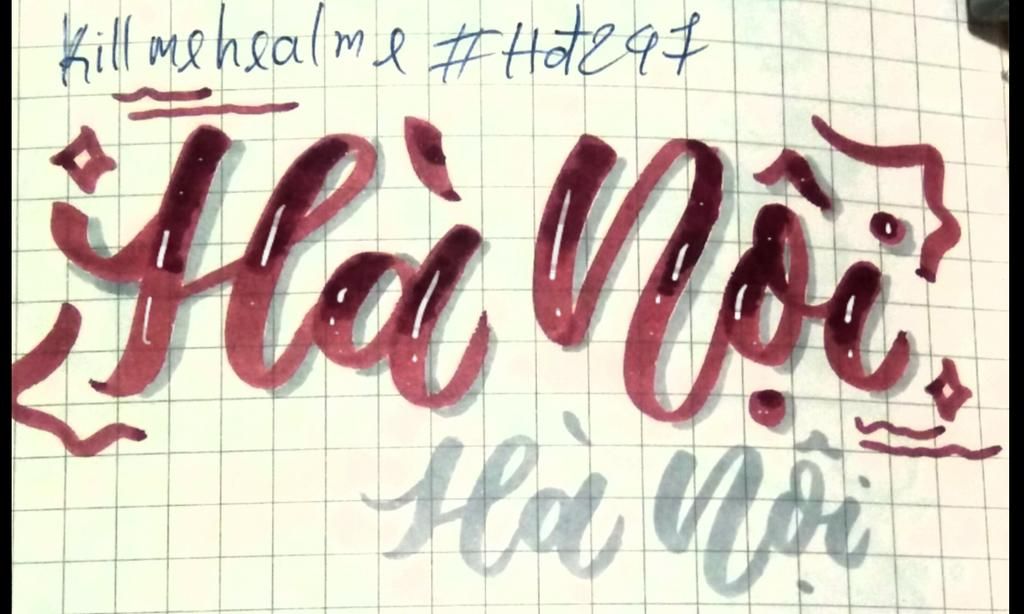 Killmehealme #Hot247
Hà Nội
Hà Nội